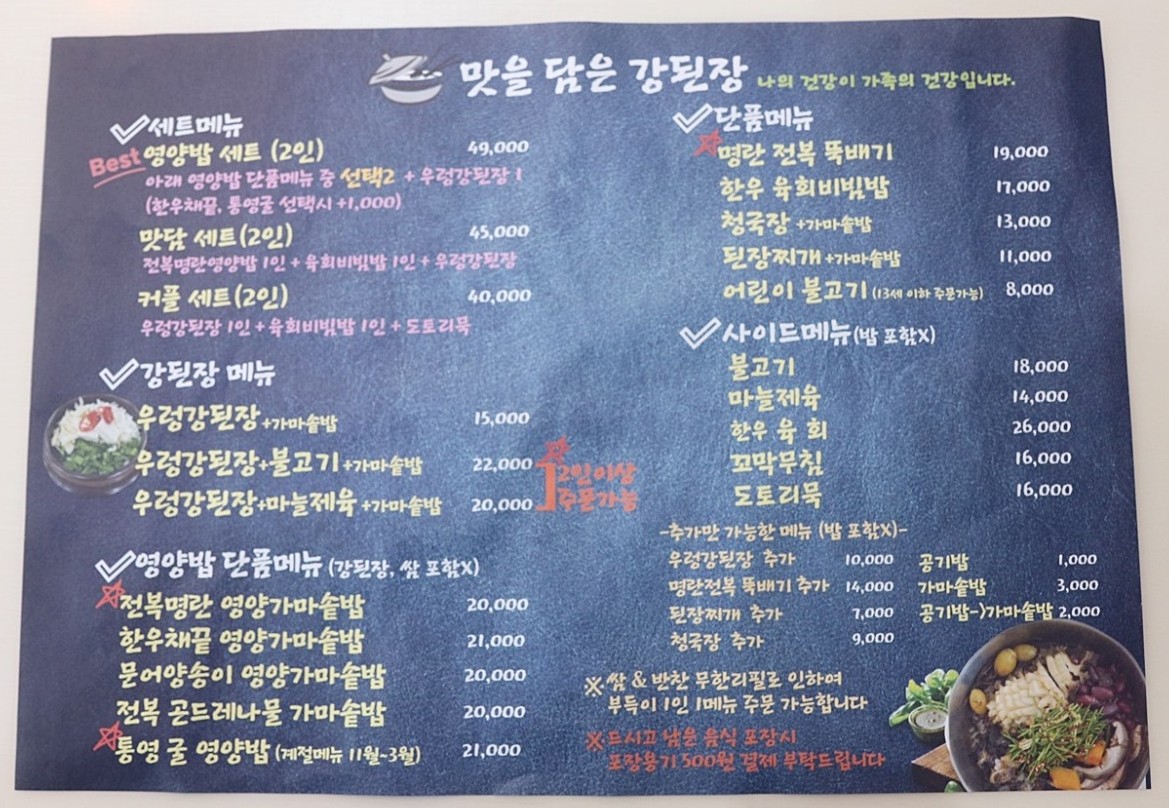 맛을 담은 강된장 나의 건강이 가족의 건강입니다.
세트메뉴
Best 영양밥 세트 (2인) 49,000
아래 영양밥 단품메뉴 중 선택2 + 우렁강된장 1
(한우채끝, 통영굴 선택시 +1,000)
맛담 세트(2인) 45,000
전복명란영양밥 1인 + 육회비빔밥 1인 + 우렁강된장
커플 세트(2인) 40,000
우렁강된장 1인 + 육회비빔밥 1인 + 도토리묵
강된장 메뉴
우렁강된장 +가마솥밥 15,000
우렁강된장+불고기 +가마솥밥 22,000
우렁강된장+마늘제육 +가마솥밥 20,000
2인이상
주문가능
영양밥 단품메뉴 (강된장, 쌈 포함X)
전복명란 영양가마솥밥 20,000
한우채끝 영양가마솥밥 21,000
문어양송이 영양가마솥밥 20,000
전복 곤드레나물 가마솥밥 20,000
통영 굴 영양밥 (계절메뉴 11월~3월) 21,000
단품메뉴
명란 전복 뚝배기 19,000
한우 육회비빔밥 17,000
청국장 +가마솥밥 13,000
된장찌개 +가마솥밥 11,000
어린이 불고기 (13세 이하 주문가능) 8,000
사이드메뉴 (밥 포함X)
불고기 18,000
마늘제육 14,000
한우 육 회 26,000
꼬막무침 16,000
도토리묵 16,000
-추가만 가능한 메뉴 (밥 포함X)-
우렁강된장 추가 10,000 공기밥 1,000
명란전복 뚝배기 추가 14,000 가마솥밥 3,000
된장찌개 추가 7,000 공기밥->가마솥밥 2,000
청국장 추가 9,000
※ 쌈 & 반찬 무한리필로 인하여
부득이 1인 1메뉴 주문 가능합니다
※ 드시고 남은 음식 포장시
포장용기 500원 결제 부탁드립니다